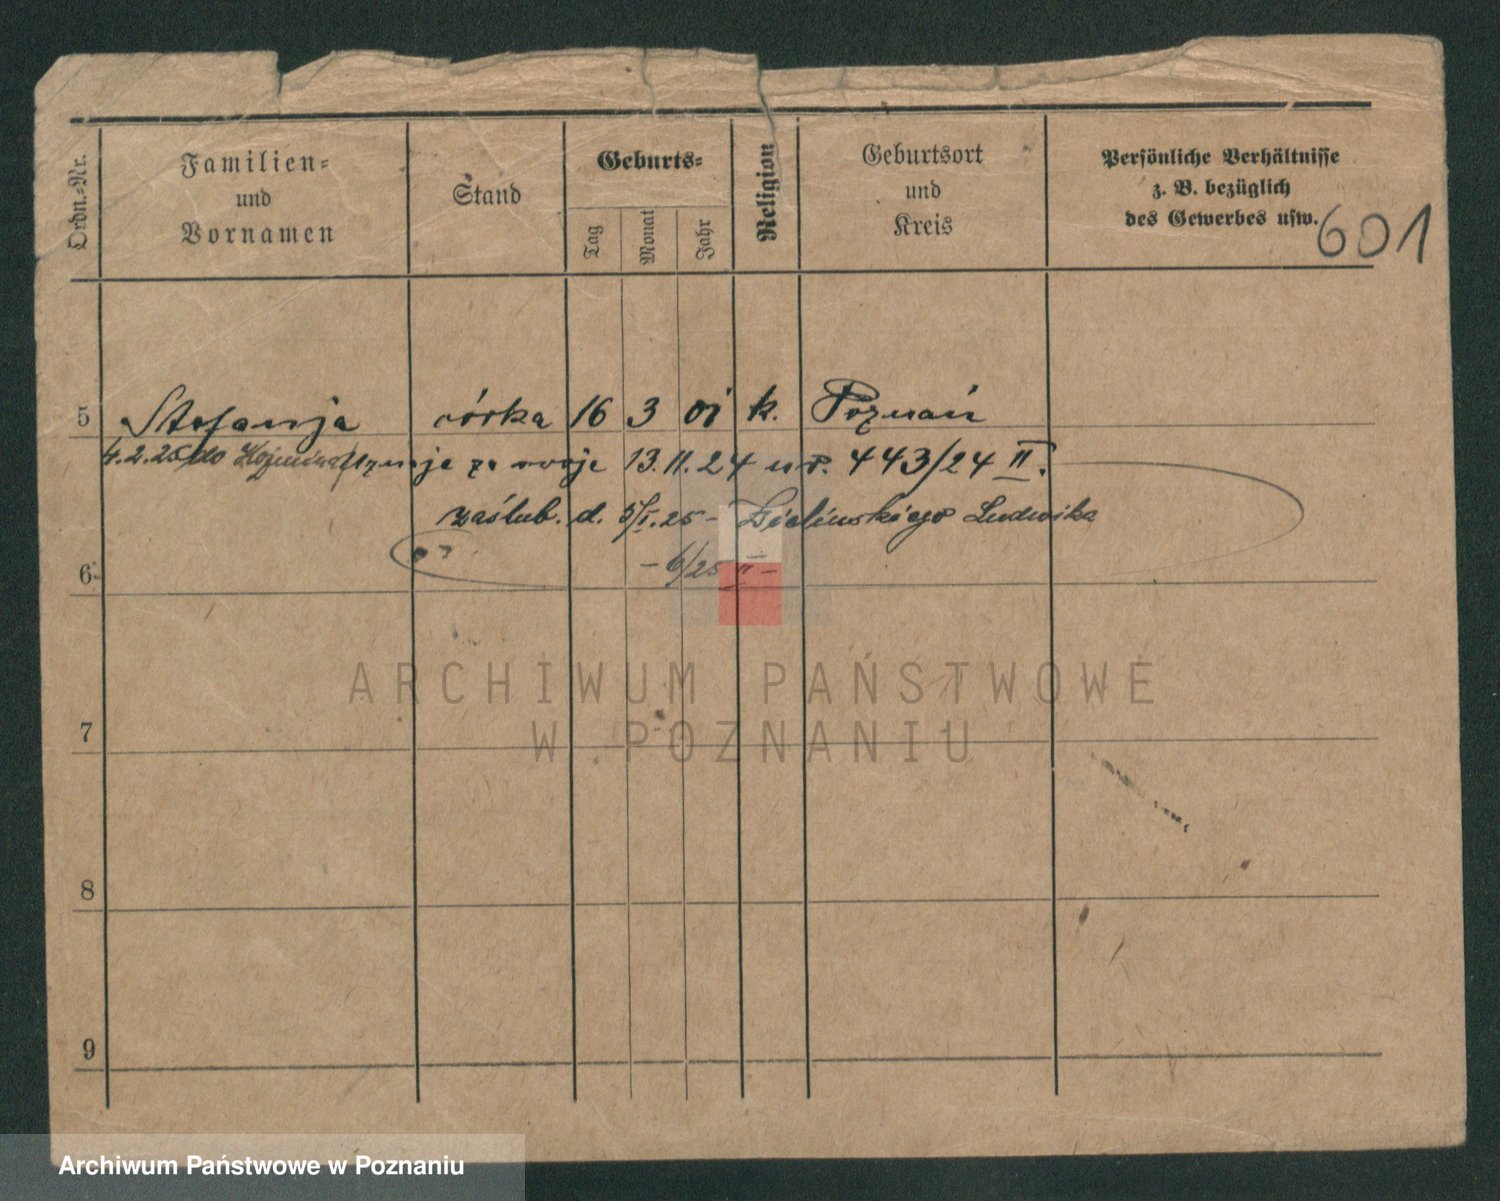 Ordn.-Nr.
Familien-
und
Vornamen
Stand
Geburts-
Tag
Monat
Jahr
Religion
Geburtsort
und
Kreis
Persönliche Verhältnisse
z. B. bezüglich
des Gewerbes usw.
601
5 Stefanja córka 16 3 01 k. Poznań
4.2.25 do uznaje za swoje 13.11.24 nr. 443/24 II.
zaślub. d. 5/I.25 - Zielińskiego Ludwika
- 6/25 II -
6
7
8
9
ARCHIWUM PAŃSTWOWE
W POZNANIU
Archiwum Państwowe w Poznaniu